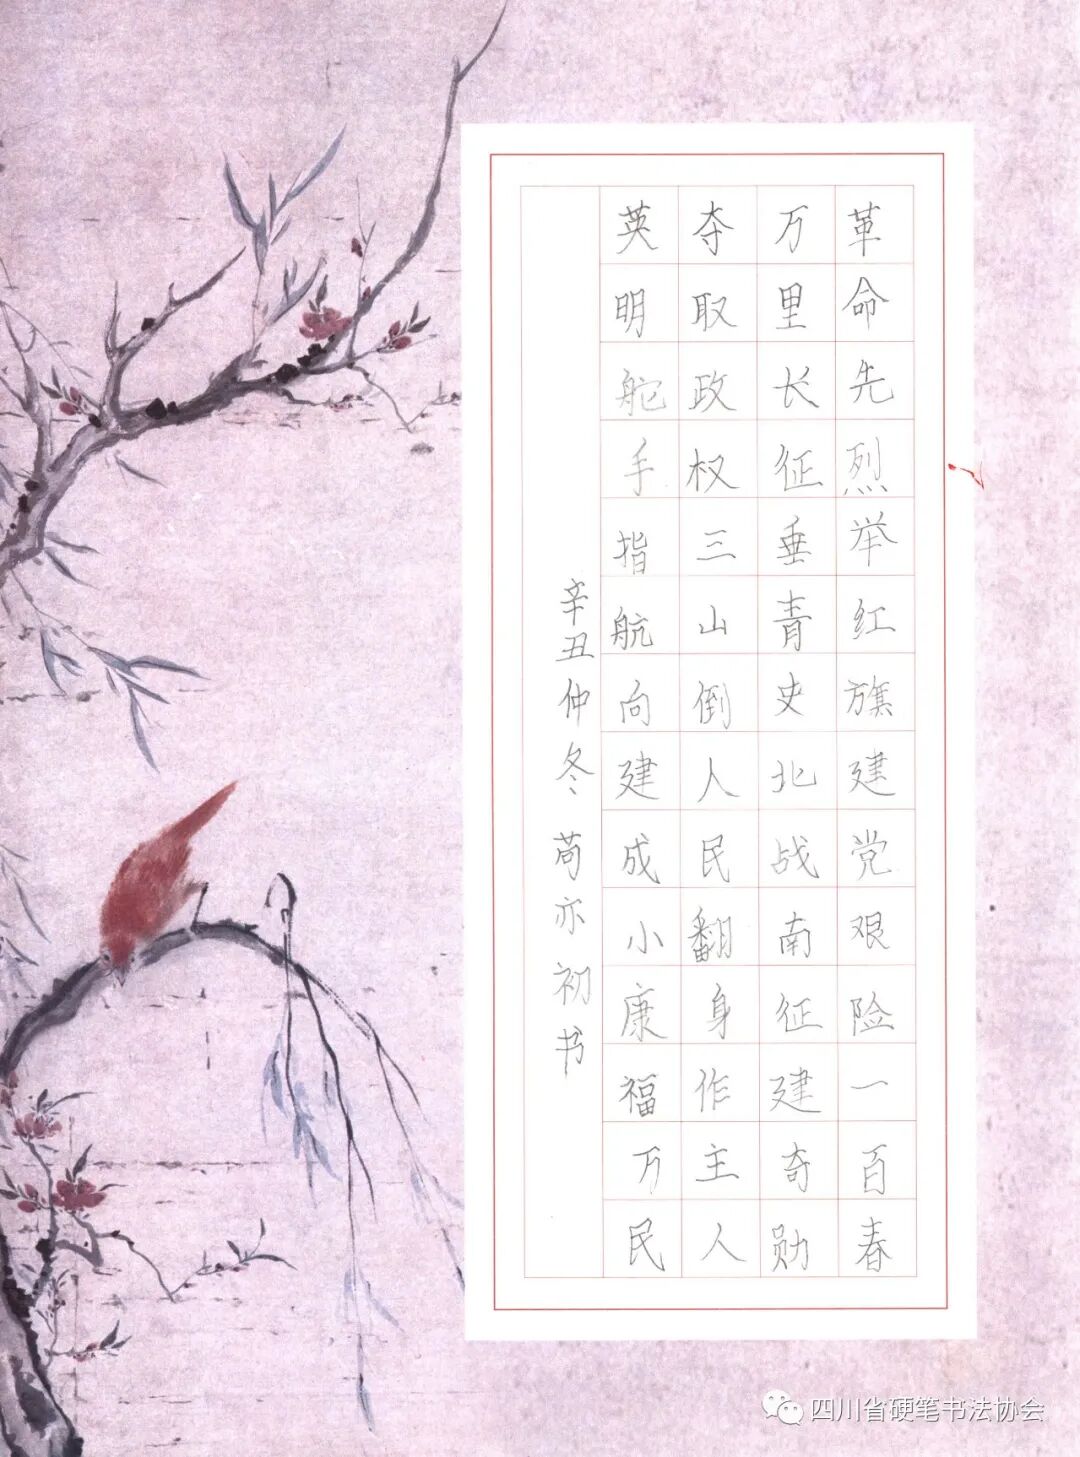 革命先烈举红旗建党艰险一百春
万里长征垂青史北战南征建奇勋
夺取政权三山倒人民翻身作主人
英明舵手指航向建成小康福万民
辛丑仲冬 苟亦初书
四川省硬笔书法协会